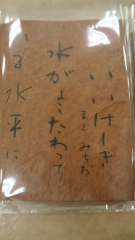 いいけしき
まど みちお
水が よこたわって
いる水平に